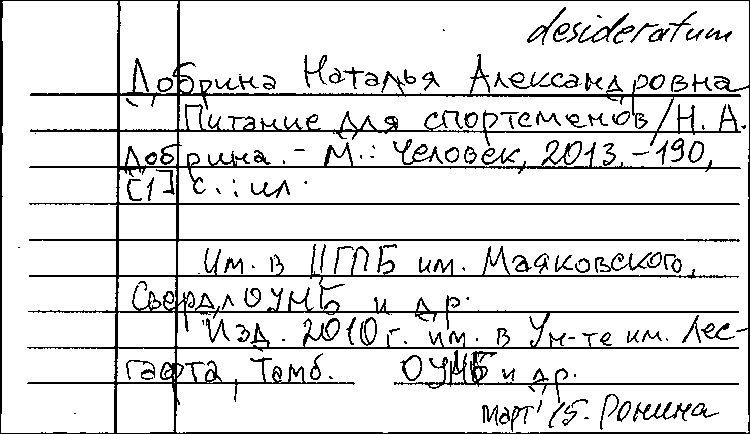 desideratum
Добрина Наталья Александровна
Питание для спортсменов / Н. А.
Добрина. - М.: Человек, 2013. - 190,
[1] с.: ил.
Им. в ЦГПБ им. Маяковского,
СвердлОУНБ и др.
Изд. 2010 г. им. в Ун-те им. Лес-
гафта, Тамб. ОУНБ и др.
март 15. Ронина